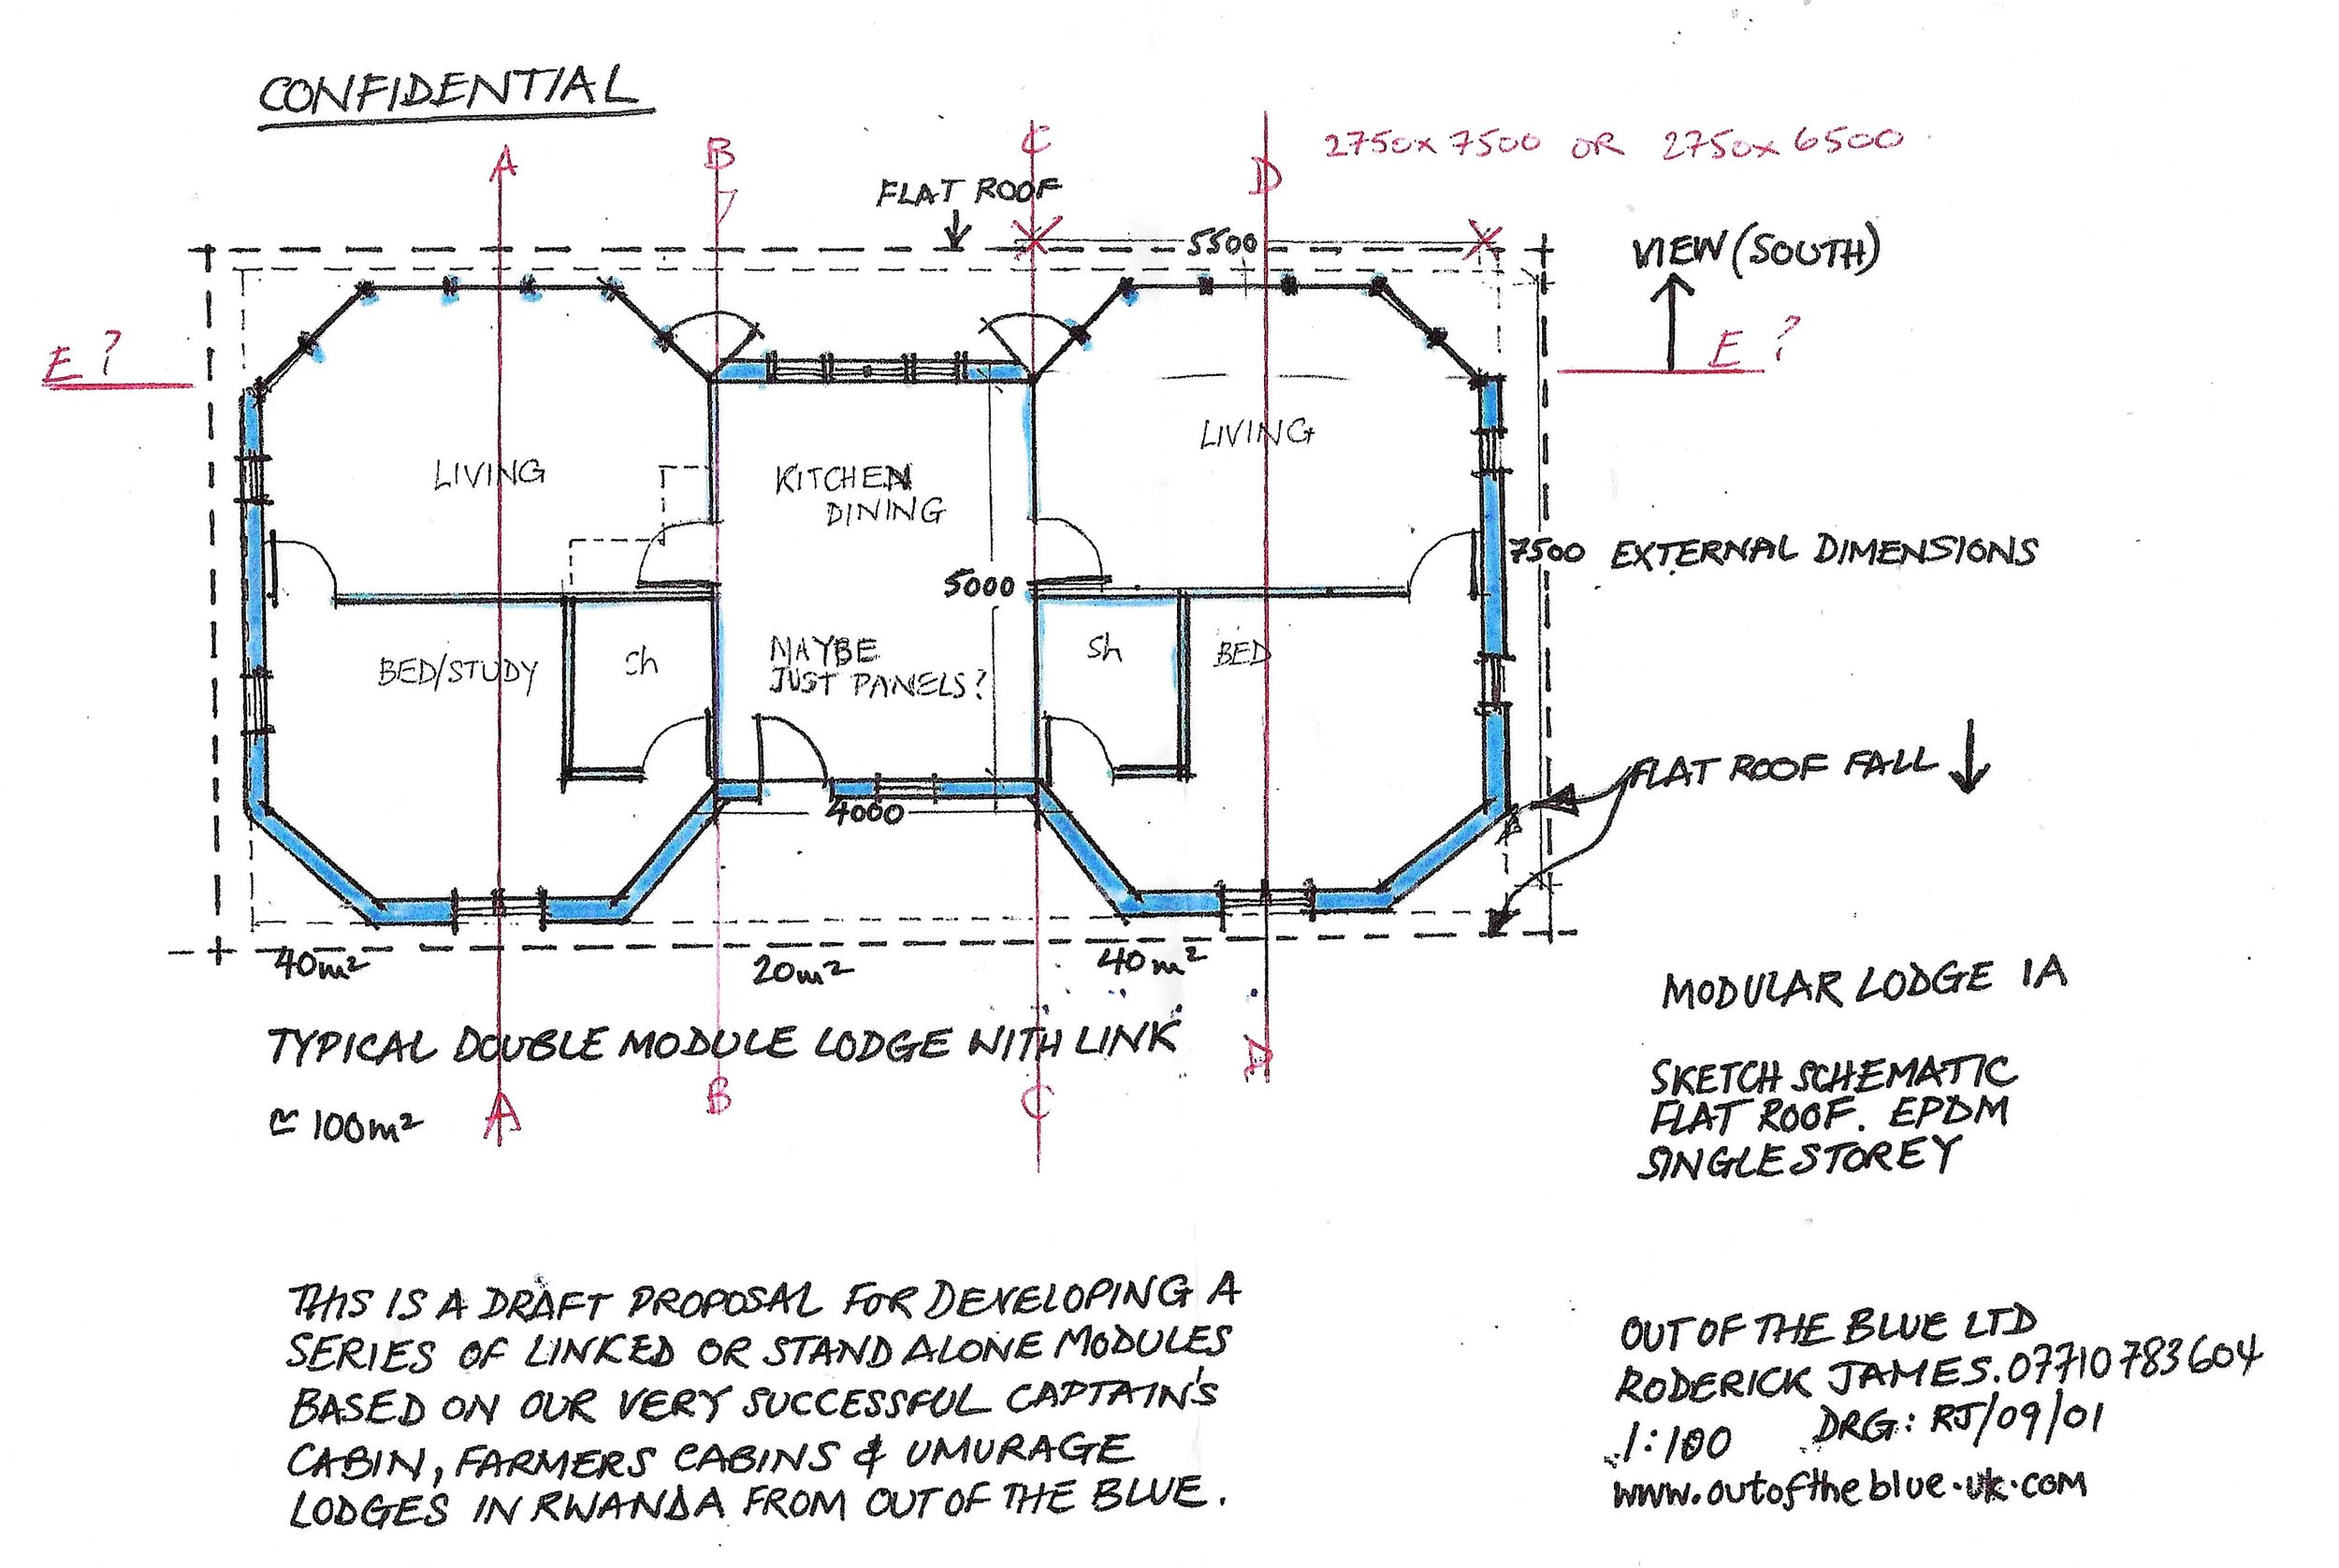 CONFIDENTIAL
A
B
C
D
2750 x 7500 OR 2750 x 6500
FLAT ROOF
5500
VIEW (SOUTH)
E ?
E ?
LIVING
KITCHEN
DINING
LIVING
7500 EXTERNAL DIMENSIONS
5000
BED/STUDY
Sh
MAYBE
JUST PANELS?
Sh
BED
FLAT ROOF FALL
4000
40m²
20m²
40m²
MODULAR LODGE 1A
TYPICAL DOUBLE MODULE LODGE WITH LINK
≃ 100m²
A
B
C
D
SKETCH SCHEMATIC
FLAT ROOF. EPDM
SINGLE STOREY
THIS IS A DRAFT PROPOSAL FOR DEVELOPING A
SERIES OF LINKED OR STAND ALONE MODULES
BASED ON OUR VERY SUCCESSFUL CAPTAIN'S
CABIN, FARMERS CABINS & UMURAGE
LODGES IN RWANDA FROM OUT OF THE BLUE.
OUT OF THE BLUE LTD
RODERICK JAMES. 07710 783604
1:100 DRG: RJ/09/01
www.outoftheblue.uk.com